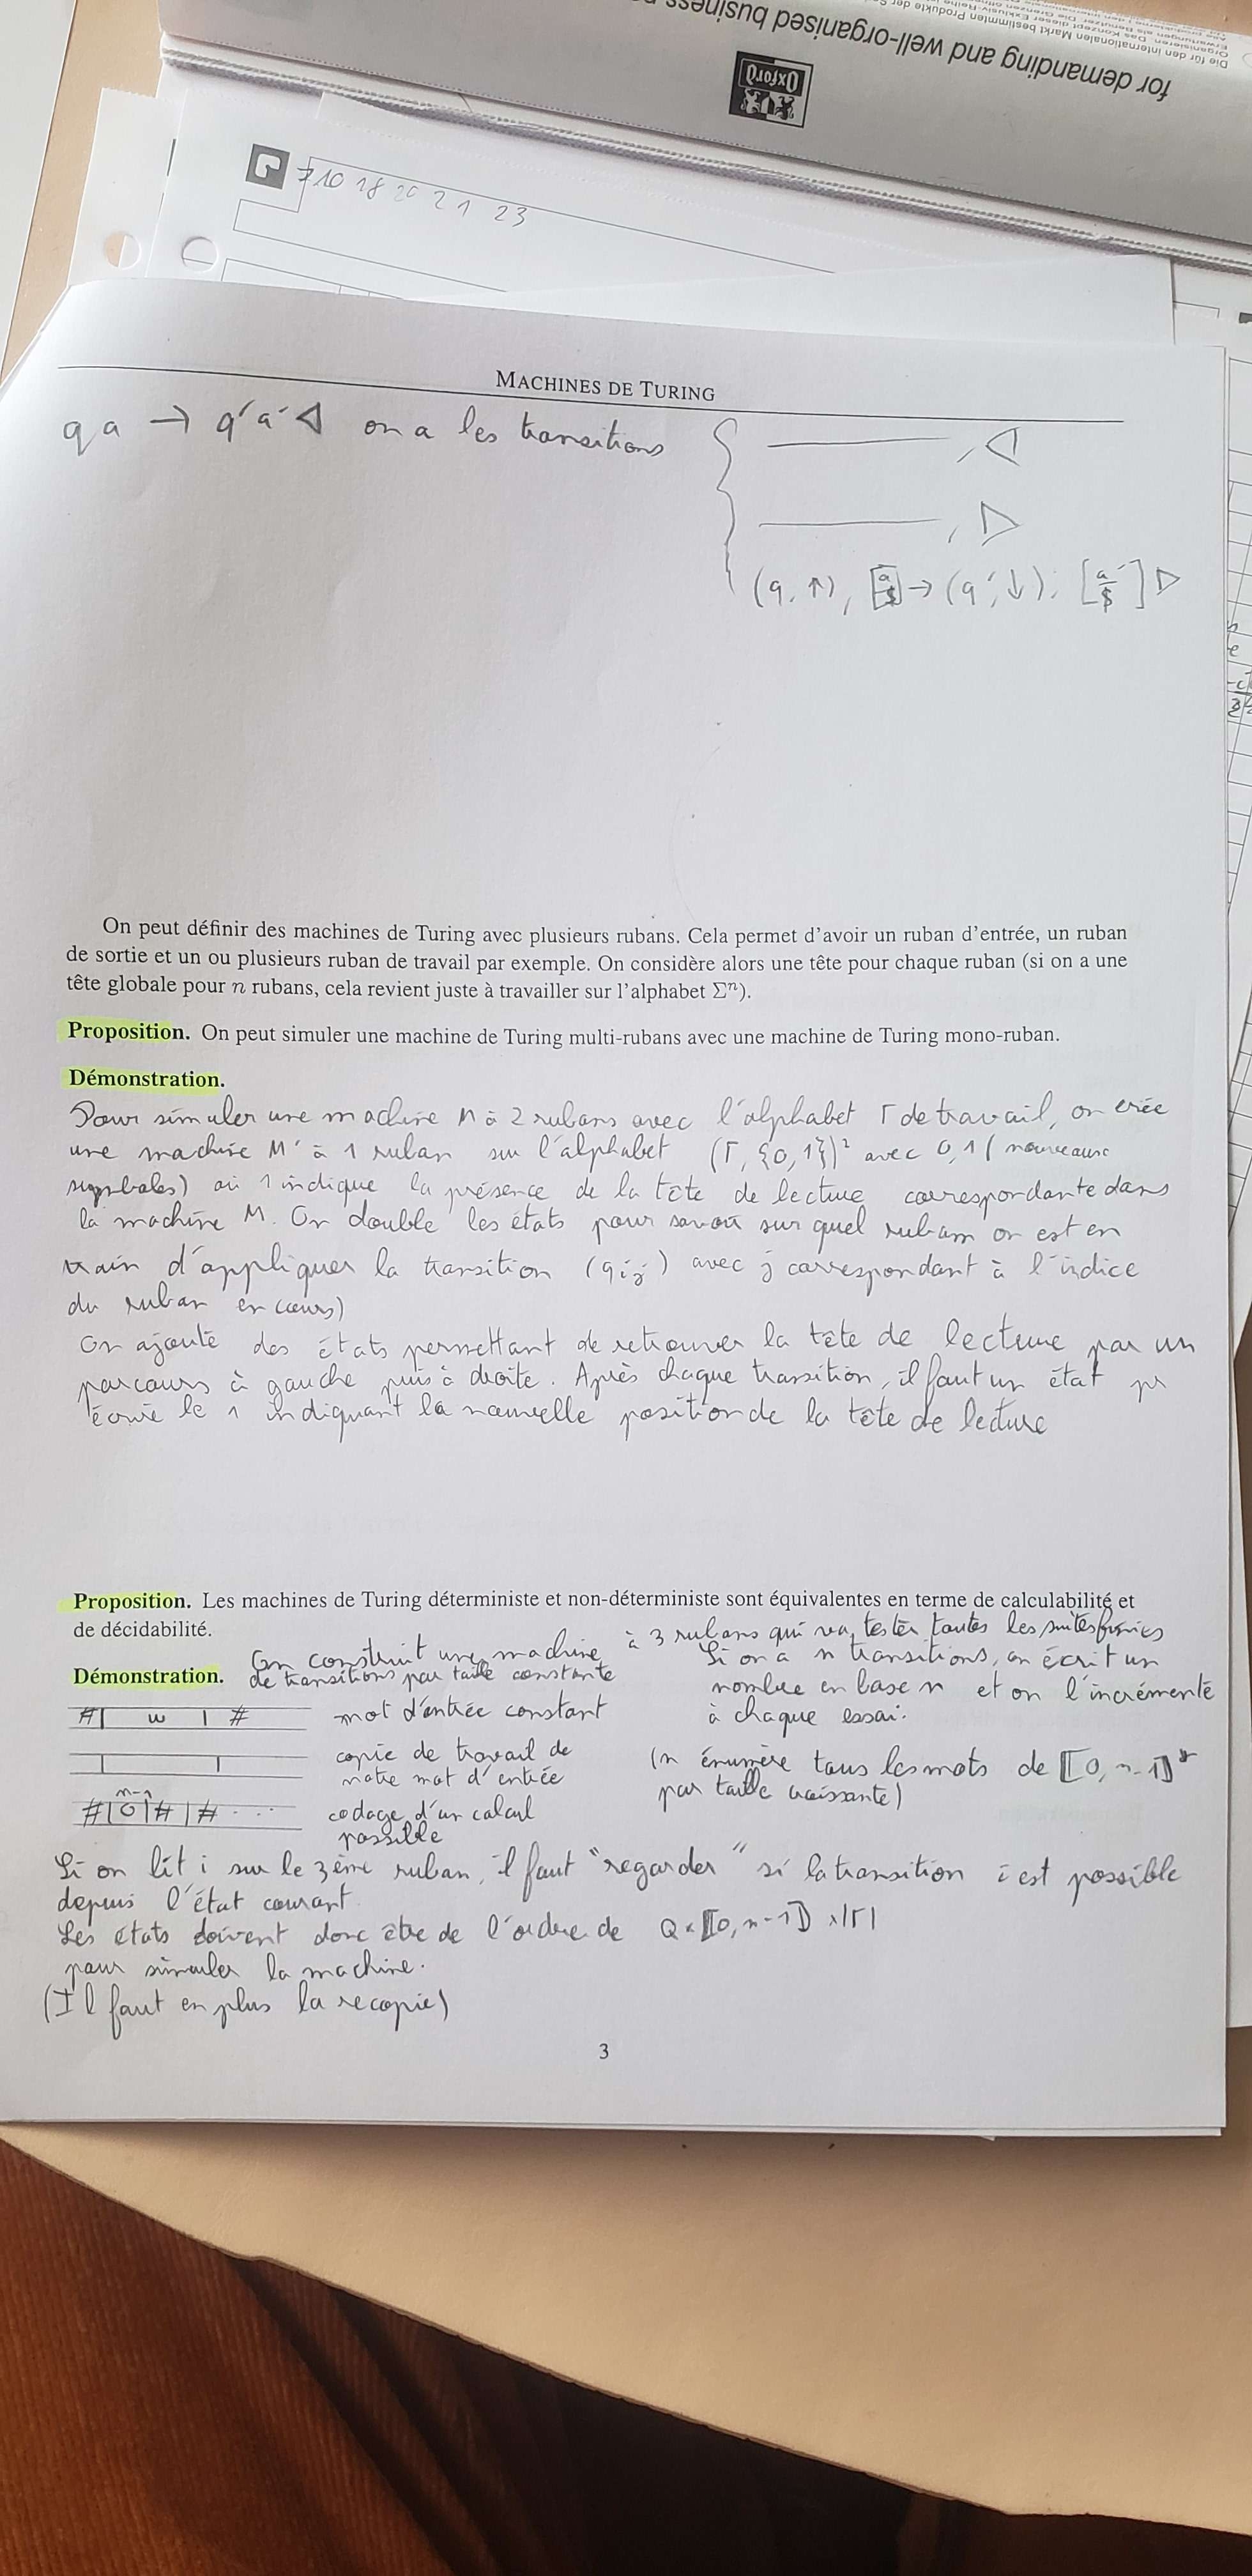 for demanding and well-organised business
Oxford
Die für den internationalen Markt bestimmten Produkte der
7 10 18 20 21 23
MACHINES DE TURING
q a → q' a' ◁ on a les transitions
, ◁
, ▷
(q, ↑), [a/$] → (q', ↓), [a'/$] ▷
On peut définir des machines de Turing avec plusieurs rubans. Cela permet d'avoir un ruban d'entrée, un ruban
de sortie et un ou plusieurs ruban de travail par exemple. On considère alors une tête pour chaque ruban (si on a une
tête globale pour n rubans, cela revient juste à travailler sur l'alphabet Σⁿ).
Proposition. On peut simuler une machine de Turing multi-rubans avec une machine de Turing mono-ruban.
Démonstration.
Pour simuler une machine M à 2 rubans avec l'alphabet Γ de travail, on crée
une machine M' à 1 ruban sur l'alphabet (Γ, {0, 1})² avec 0, 1 (nouveaux
symboles) où 1 indique la présence de la tête de lecture correspondante dans
la machine M. On double les états pour savoir sur quel ruban on est en
train d'appliquer la transition (qi,j) avec j correspondant à l'indice
du ruban en cours)
On ajoute des états permettant de retrouver la tête de lecture par un
parcours à gauche puis à droite. Après chaque transition, il faut un état pr
écrire le 1 indiquant la nouvelle position de la tête de lecture
Proposition. Les machines de Turing déterministe et non-déterministe sont équivalentes en terme de calculabilité et
de décidabilité.
Démonstration. On construit une machine à 3 rubans qui va tester toutes les suites finies
de transitions par taille constante
Si on a n transitions, on écrit un
nombre en base n et on l'incrémente
à chaque essai.
# w # mot d'entrée constant
copie de travail de
notre mot d'entrée
(n énumère tous les mots de ⟦0, n-1⟧*
par taille croissante)
n-1
# | 0 | # | # ... codage d'un calcul
possible
Si on lit i sur le 3ème ruban, il faut "regarder" si la transition i est possible
depuis l'état courant.
Les états doivent donc être de l'ordre de Q × ⟦0, n-1⟧ × |Γ|
pour simuler la machine.
(Il faut en plus la recopie)
3